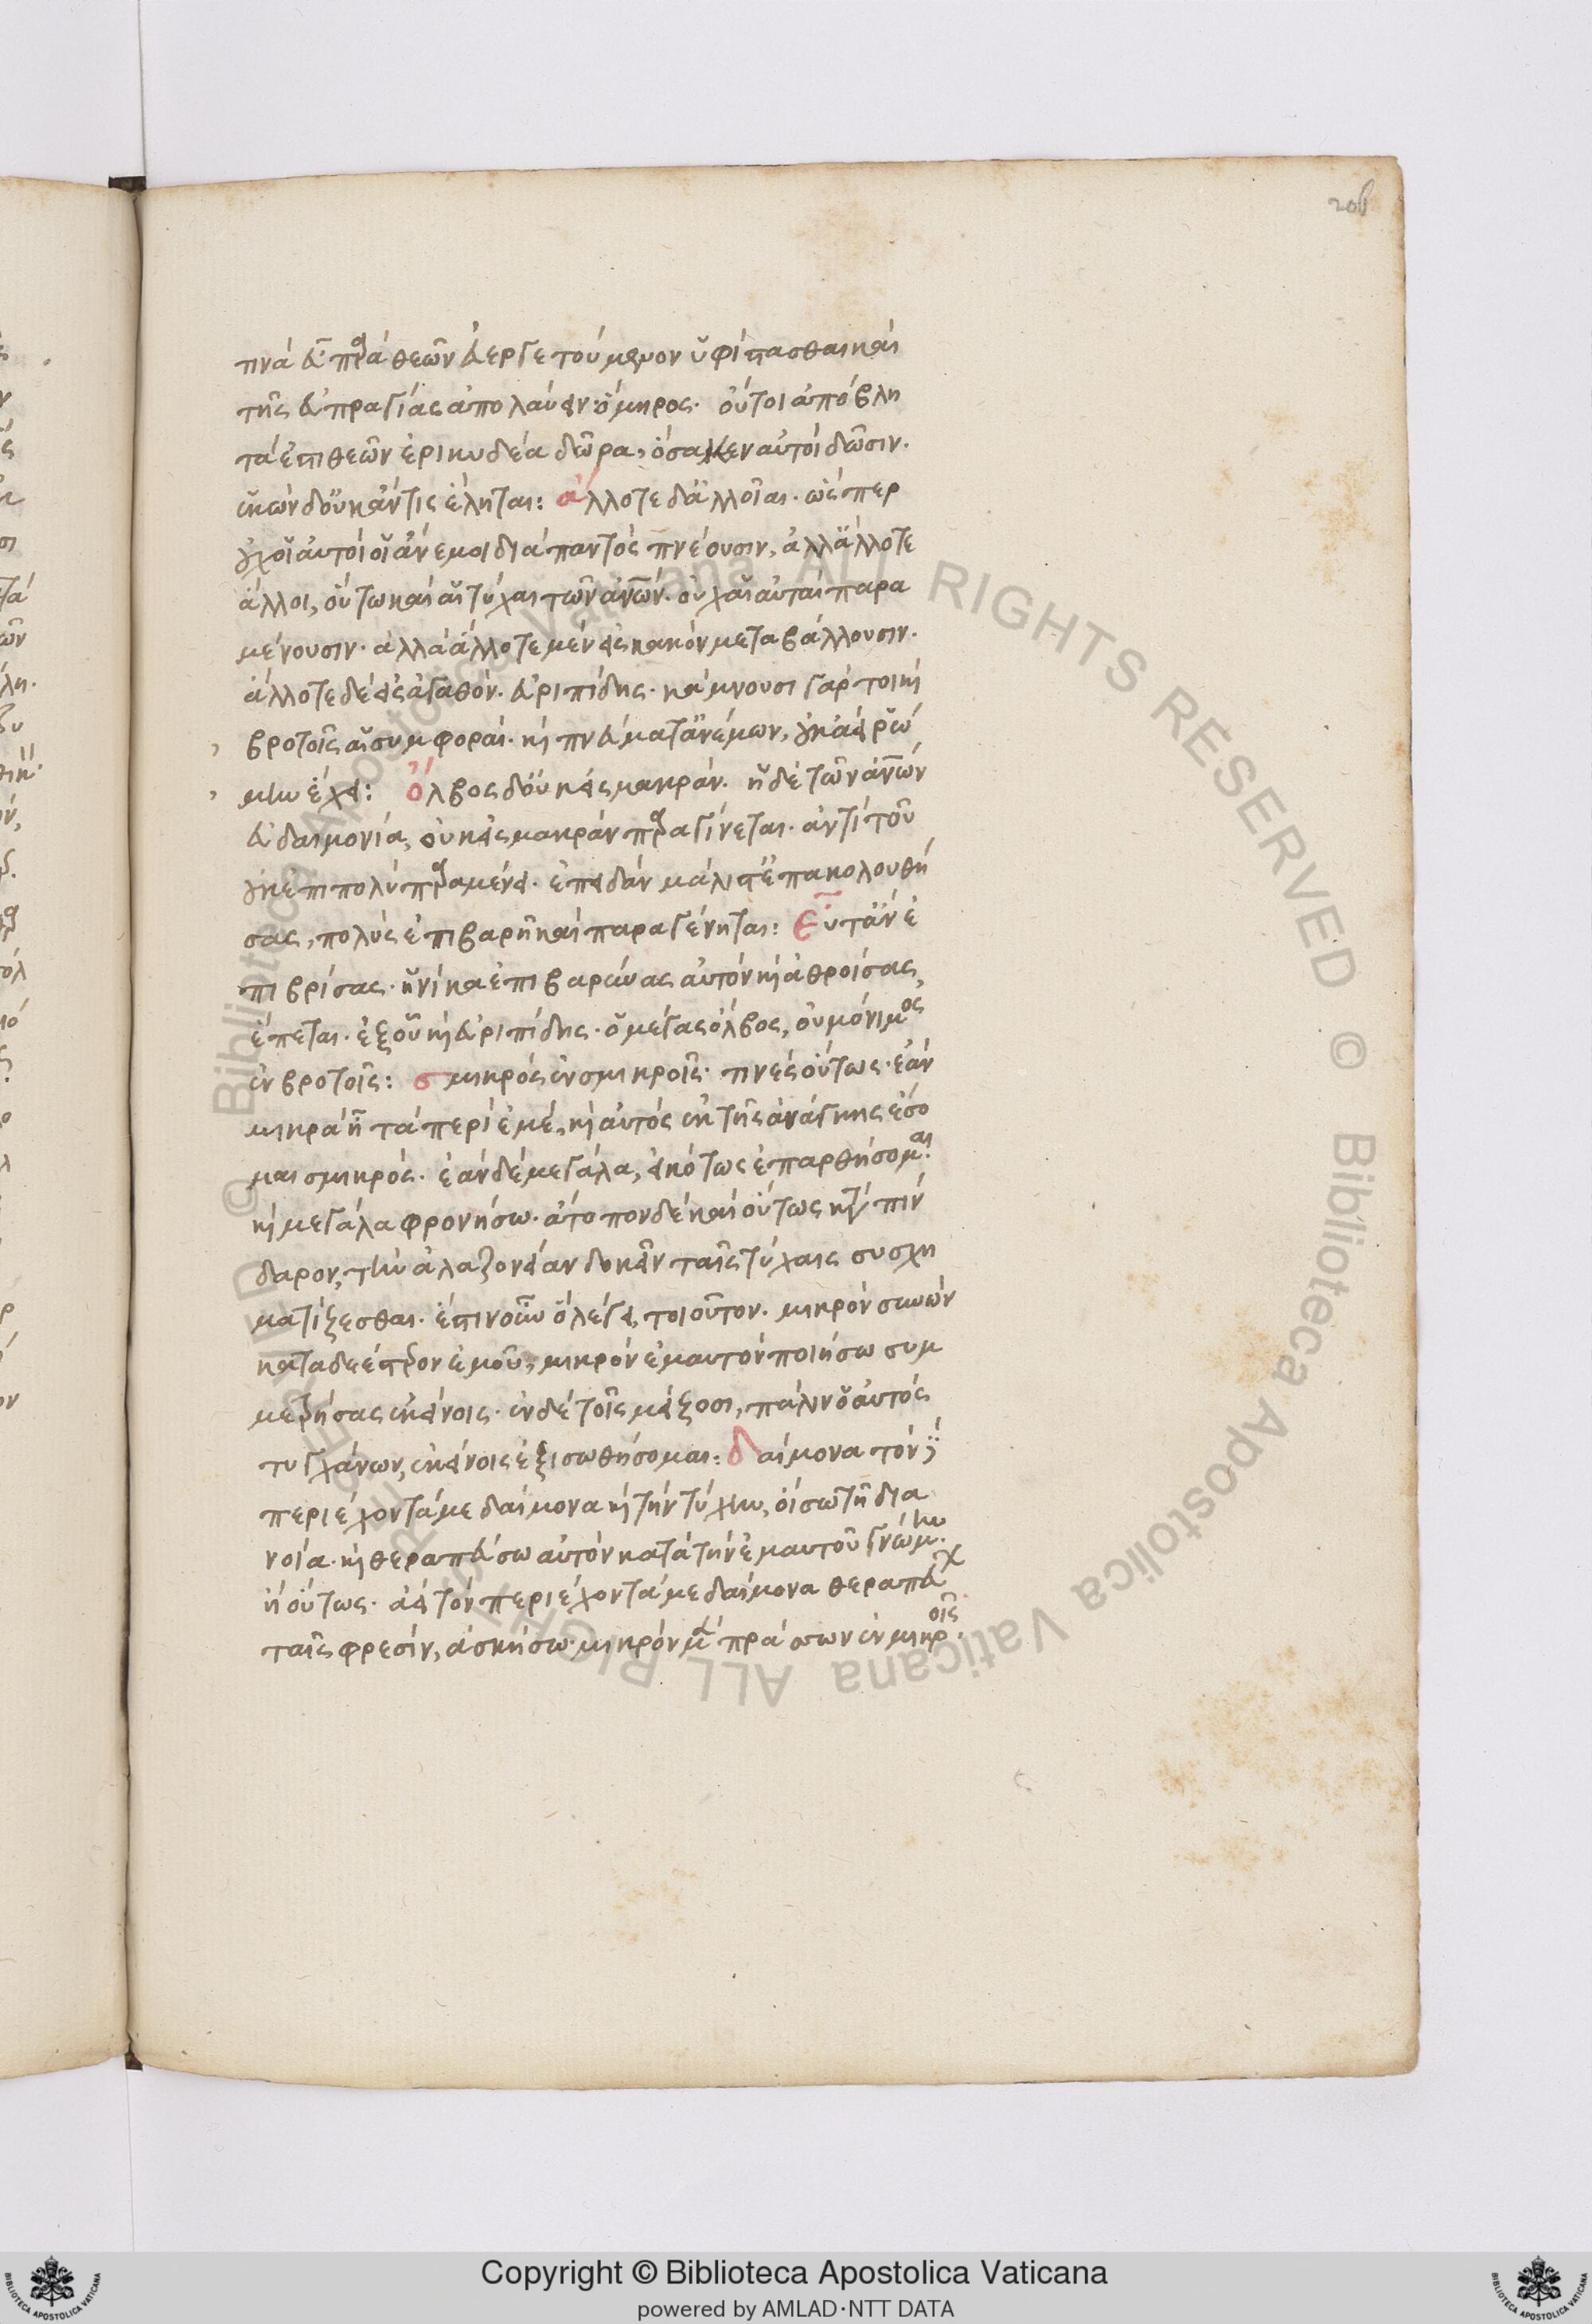 206
τινὰ εὖ παρὰ θεῶν εὐεργετούμενον ὑφίστασθαι καὶ
τῆς εὐπραγίας ἀπολαύειν· ὅμηρος· οὔτοι ἀπόβλη
τά ἐστι θεῶν ἐρικυδέα δῶρα, ὅσα κεν αὐτοὶ δῶσιν.
ἑκὼν δ' οὐκ ἄν τις ἕληται: ἄλλοτε δ' ἀλλοῖαι· ὥσπερ
οὐχ οἱ αὐτοὶ οἱ ἄνεμοι διὰ παντὸς πνέουσιν, ἀλλ' ἄλλοτε
ἄλλοι, οὕτω καὶ αἱ τύχαι τῶν ἀνῶν· οὐχ αἱ αὐταὶ παρα
μένουσιν· ἀλλὰ ἄλλοτε μὲν εἰς κακὸν μεταβάλλουσιν·
ἄλλοτε δὲ εἰς ἀγαθόν· εὐριπίδης· κάμνουσι γάρ τοι καὶ
βροτοῖς αἱ συμφοραὶ· καὶ πνεύματ' ἀνέμων, οὐκ ἀεὶ ῥώ
μην ἔχει: ὄλβος δ' οὐκ ἐς μακράν· ἡ δὲ τῶν ἀνῶν
εὐδαιμονία, οὐκ εἰς μακρὰν παραγίνεται· ἀντὶ τοῦ
οὐκ επιπολὺ παραμένει· ἐπειδὰν μάλιστ' ἐπακολουθή
σας, πολὺς ἐπιβαρῆ καὶ παραγένηται: Εὖτ' ἂν ἐ
πιβρίσας· ἡνίκα ἐπιβαρύνας αὐτὸν καὶ ἀθροίσας,
ἕπεται· ἐξ οὗ καὶ εὐριπίδης· ὁ μέγας ὄλβος, οὐ μόνιμος
ἐν βροτοῖς: σμικρὸς ἐν σμικροῖς· τινὲς οὕτως· ἐὰν
μικρὰ ᾖ τὰ περὶ ἐμὲ, καὶ αὐτὸς ἐκ τῆς ἀνάγκης ἔσο
μαι σμικρός· ἐὰν δὲ μεγάλα, εἰκότως ἐπαρθήσομαι
καὶ μεγάλα φρονήσω· ἄτοπον δὲ καὶ οὕτως κατὰ πίν
δαρον, τὴν ἀλαζονείαν δοκεῖν ταῖς τύχαις συσχη
ματίζεσθαι· ἔστιν οὖν ὃ λέγει, τοιοῦτον· μικρὸν συνὼν
καταδεέστερον ἐμοῦ, μικρὸν ἐμαυτὸν ποιήσω συμ
μετρήσας ἐκείνοις· ἐν δὲ τοῖς μείζοσι, πάλιν ὁ αὐτὸς
τυγχάνων, ἐκείνοις ἐξισωθήσομαι: δαίμονα τὸν
περιέχοντά με δαίμονα καὶ τὴν τύχην, οἴσω τῆ δια
νοία· καὶ θεραπεύσω αὐτὸν κατὰ τὴν ἐμαυτοῦ γνώμην·
ἢ οὕτως· ἀεὶ τὸν περιέχοντά με δαίμονα
ταῖς φρεσὶν, ἀσκήσω· μικρὸν μὲν πράσσων ἐν μικροῖς·
Copyright © Biblioteca Apostolica Vaticana
powered by AMLAD·NTT DATA
© Biblioteca Apostolica Vaticana ALL RIGHTS RESERVED
© Biblioteca Apostolica Vaticana ALL RIGHTS RESERVED